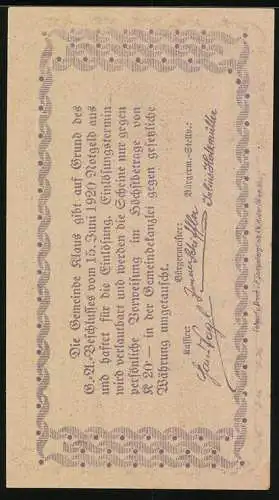 Die Gemeinde Klaus gibt auf Grund des
G.-A.-Beschlusses vom 15. Juni 1920 Notgeld aus
und haftet für die Einlösung. Einlösungstermin
wird verlautbart und werden die Scheine nur gegen
persönliche Vorweisung im Höchstbetrage von
K 20— in der Gemeindekanzlei gegen gesetzliche
Währung umgetauscht.
Kassier: Bürgermeister: Bürgerm.-Stellv.: